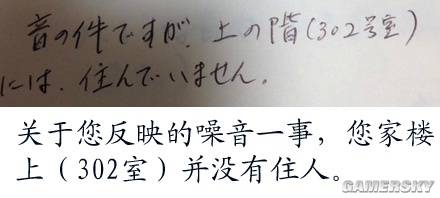 音の件ですが、上の階(302号室)
には、住んでいません。
关于您反映的噪音一事，您家楼
上（302室）并没有住人。
GAMERSKY